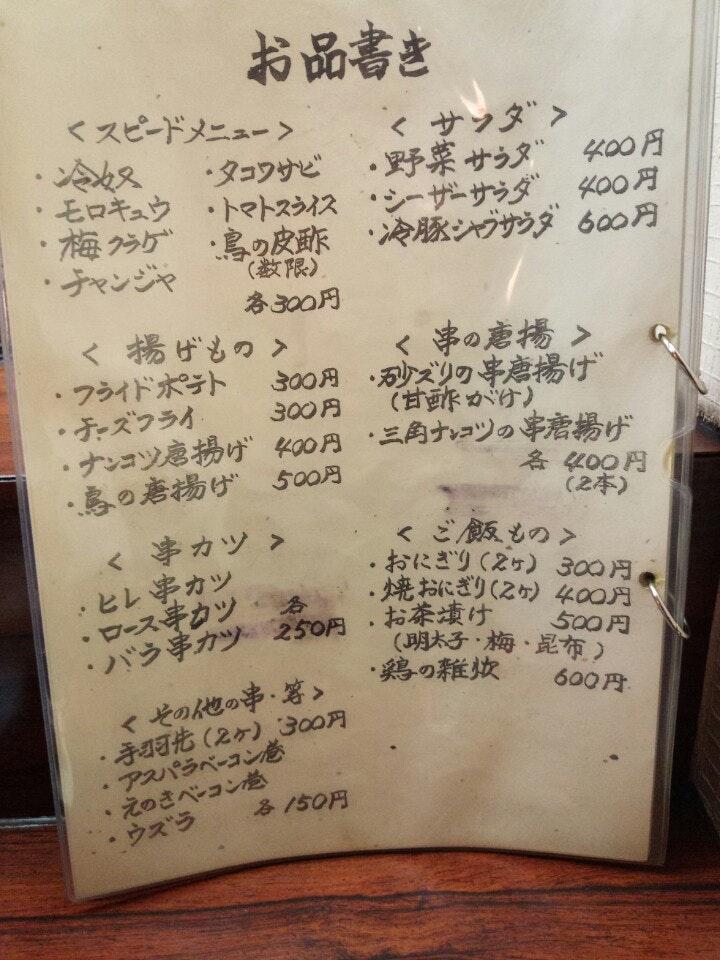 お品書き
<スピードメニュー>
・冷奴 ・タコワサビ
・モロキュウ ・トマトスライス
・梅クラゲ ・鳥の皮酢
(数限)
・チャンジャ
各300円
<揚げもの>
・フライドポテト 300円
・チーズフライ 300円
・ナンコツ唐揚げ 400円
・鳥の唐揚げ 500円
<串カツ>
・ヒレ串カツ
・ロース串カツ 各
・バラ串カツ 250円
<その他の串・等>
・手羽先(2ヶ) 300円
・アスパラベーコン巻
・えのきベーコン巻
・ウズラ 各150円
<サラダ>
・野菜サラダ 400円
・シーザーサラダ 400円
・冷豚シャブサラダ 600円
<串の唐揚>
・砂ズリの串唐揚げ
(甘酢がけ)
・三角ナンコツの串唐揚げ
各400円
(2本)
<ご飯もの>
・おにぎり(2ヶ) 300円
・焼おにぎり(2ヶ) 400円
・お茶漬け 500円
(明太子・梅・昆布)
・鶏の雑炊 600円